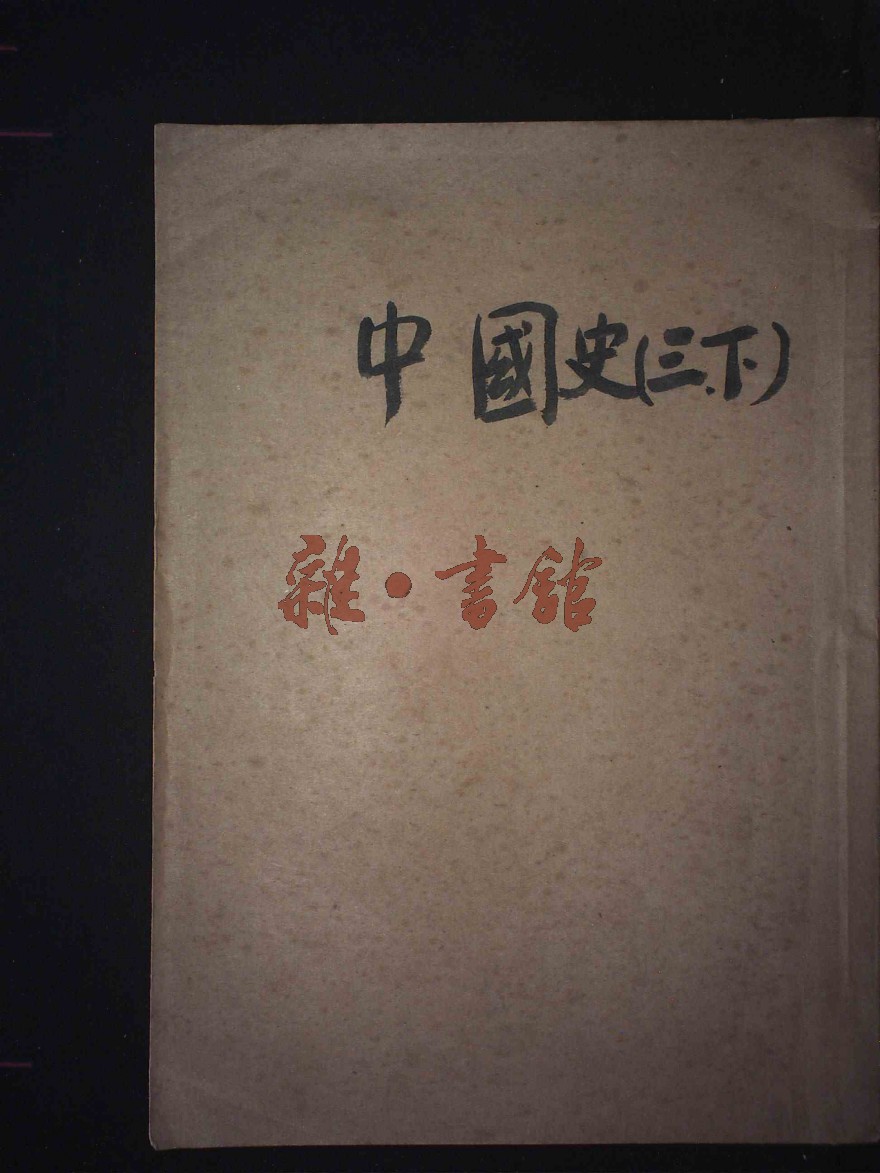 中國史(三.下)
雜·書館